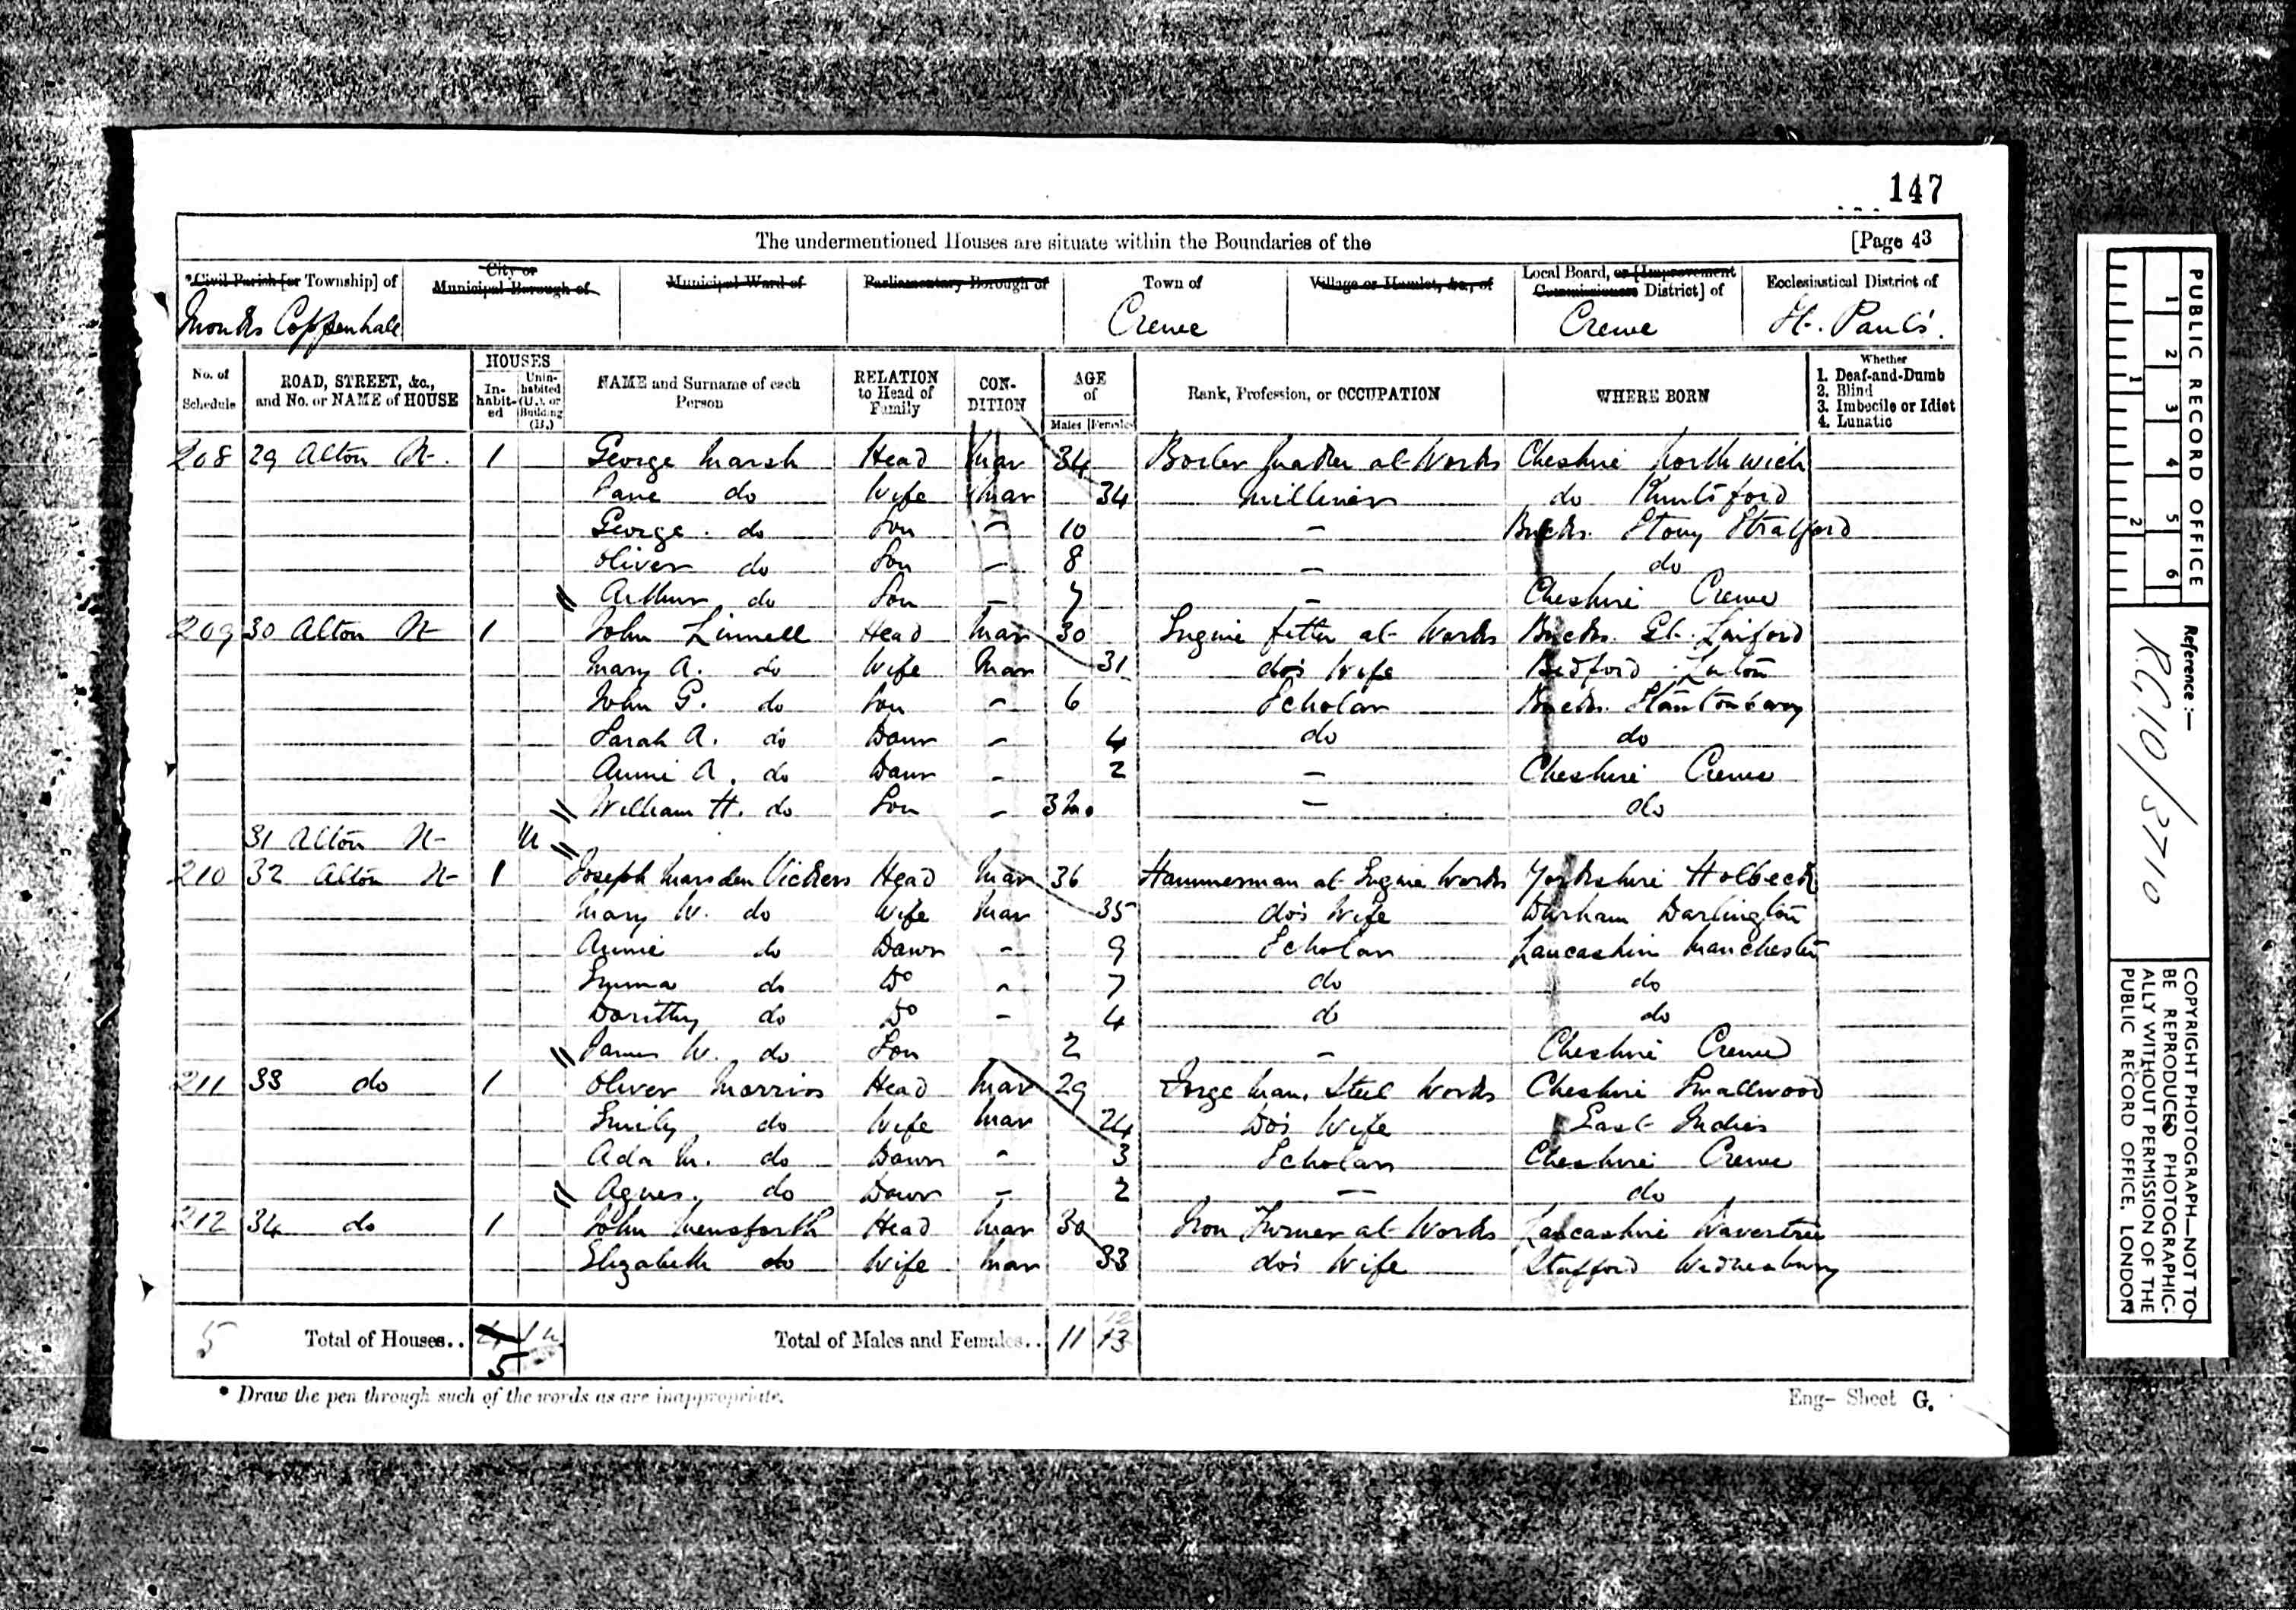 147
The undermentioned Houses are situate within the Boundaries of the [Page 43
*Civil Parish [or Township] of
City or Municipal Borough of
Municipal Ward of
Parliamentary Borough of
Town of
Village or Hamlet, &c., of
Local Board, or [Improvement Commissioners District] of
Ecclesiastical District of
Monks Coppenhall
Crewe
Crewe
St. Paul's.
No. of Schedule
ROAD, STREET, &c., and No. or NAME of HOUSE
HOUSES
In-habit-ed
Unin-habited (U.), or Building (B.)
NAME and Surname of each Person
RELATION to Head of Family
CON-DITION
AGE of
Males Females
Rank, Profession, or OCCUPATION
WHERE BORN
Whether
1. Deaf-and-Dumb
2. Blind
3. Imbecile or Idiot
4. Lunatic
208 29 Alton St. 1 George Marsh Head Mar 34 Boiler Maker at Works Cheshire Northwich
Jane do Wife Mar 34 Milliner do Knutsford
George do Son - 10 - Bucks. Stony Stratford
Oliver do Son - 8 - do
Arthur do Son - 7 - Cheshire Crewe
209 30 Alton St 1 John Linnell Head Mar 30 Engine fitter at Works Bucks. Gt. Linford
Mary A. do Wife Mar 31 do's Wife Bedford Luton
John G. do Son - 6 Scholar Bucks. Stantonbury
Sarah A. do Daur - 4 do do
Annie A. do Daur - 2 - Cheshire Crewe
William H. do Son - 3 Mo - do
31 Alton St U
210 32 Alton St 1 Joseph Marsden Vickers Head Mar 36 Hammerman at Engine Works Yorkshire Holbeck
Mary W. do Wife Mar 35 do's Wife Durham Darlington
Annie do Daur - 9 Scholar Lancashire Manchester
Emma do Do - 7 do do
Dorithy do Do - 4 do do
James W. do Son 2 - Cheshire Crewe
211 33 do 1 Oliver Morrios Head Mar 29 Forge Man. Steel Works Cheshire Smallwood
Emily do Wife Mar 24 Do's Wife East Indies
Ada M. do Daur - 3 Scholar Cheshire Crewe
Agnes. do Daur - 2 - do
212 34 do 1 John Mensforth Head Mar 30 Iron Turner at Works Lancashire Wavertree
Elizabeth do Wife Mar 33 do's Wife Stafford Wednesbury
5 Total of Houses.. 4 1 u
5
Total of Males and Females.. 11 13
12
* Draw the pen through such of the words as are inappropriate.
Eng- Sheet G.
PUBLIC RECORD OFFICE
1 2 3 4 5 6
1 2
Reference :-
R.G. 10/3710
COPYRIGHT PHOTOGRAPH—NOT TO
BE REPRODUCED PHOTOGRAPHIC-
ALLY WITHOUT PERMISSION OF THE
PUBLIC RECORD OFFICE, LONDON